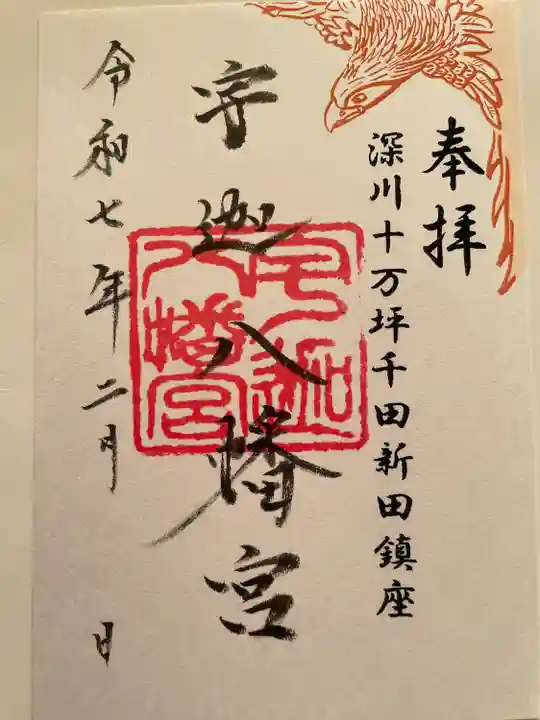 奉拝
深川十万坪千田新田鎮座
宇迦八幡宮
宇迦八幡宮
令和七年二月 日